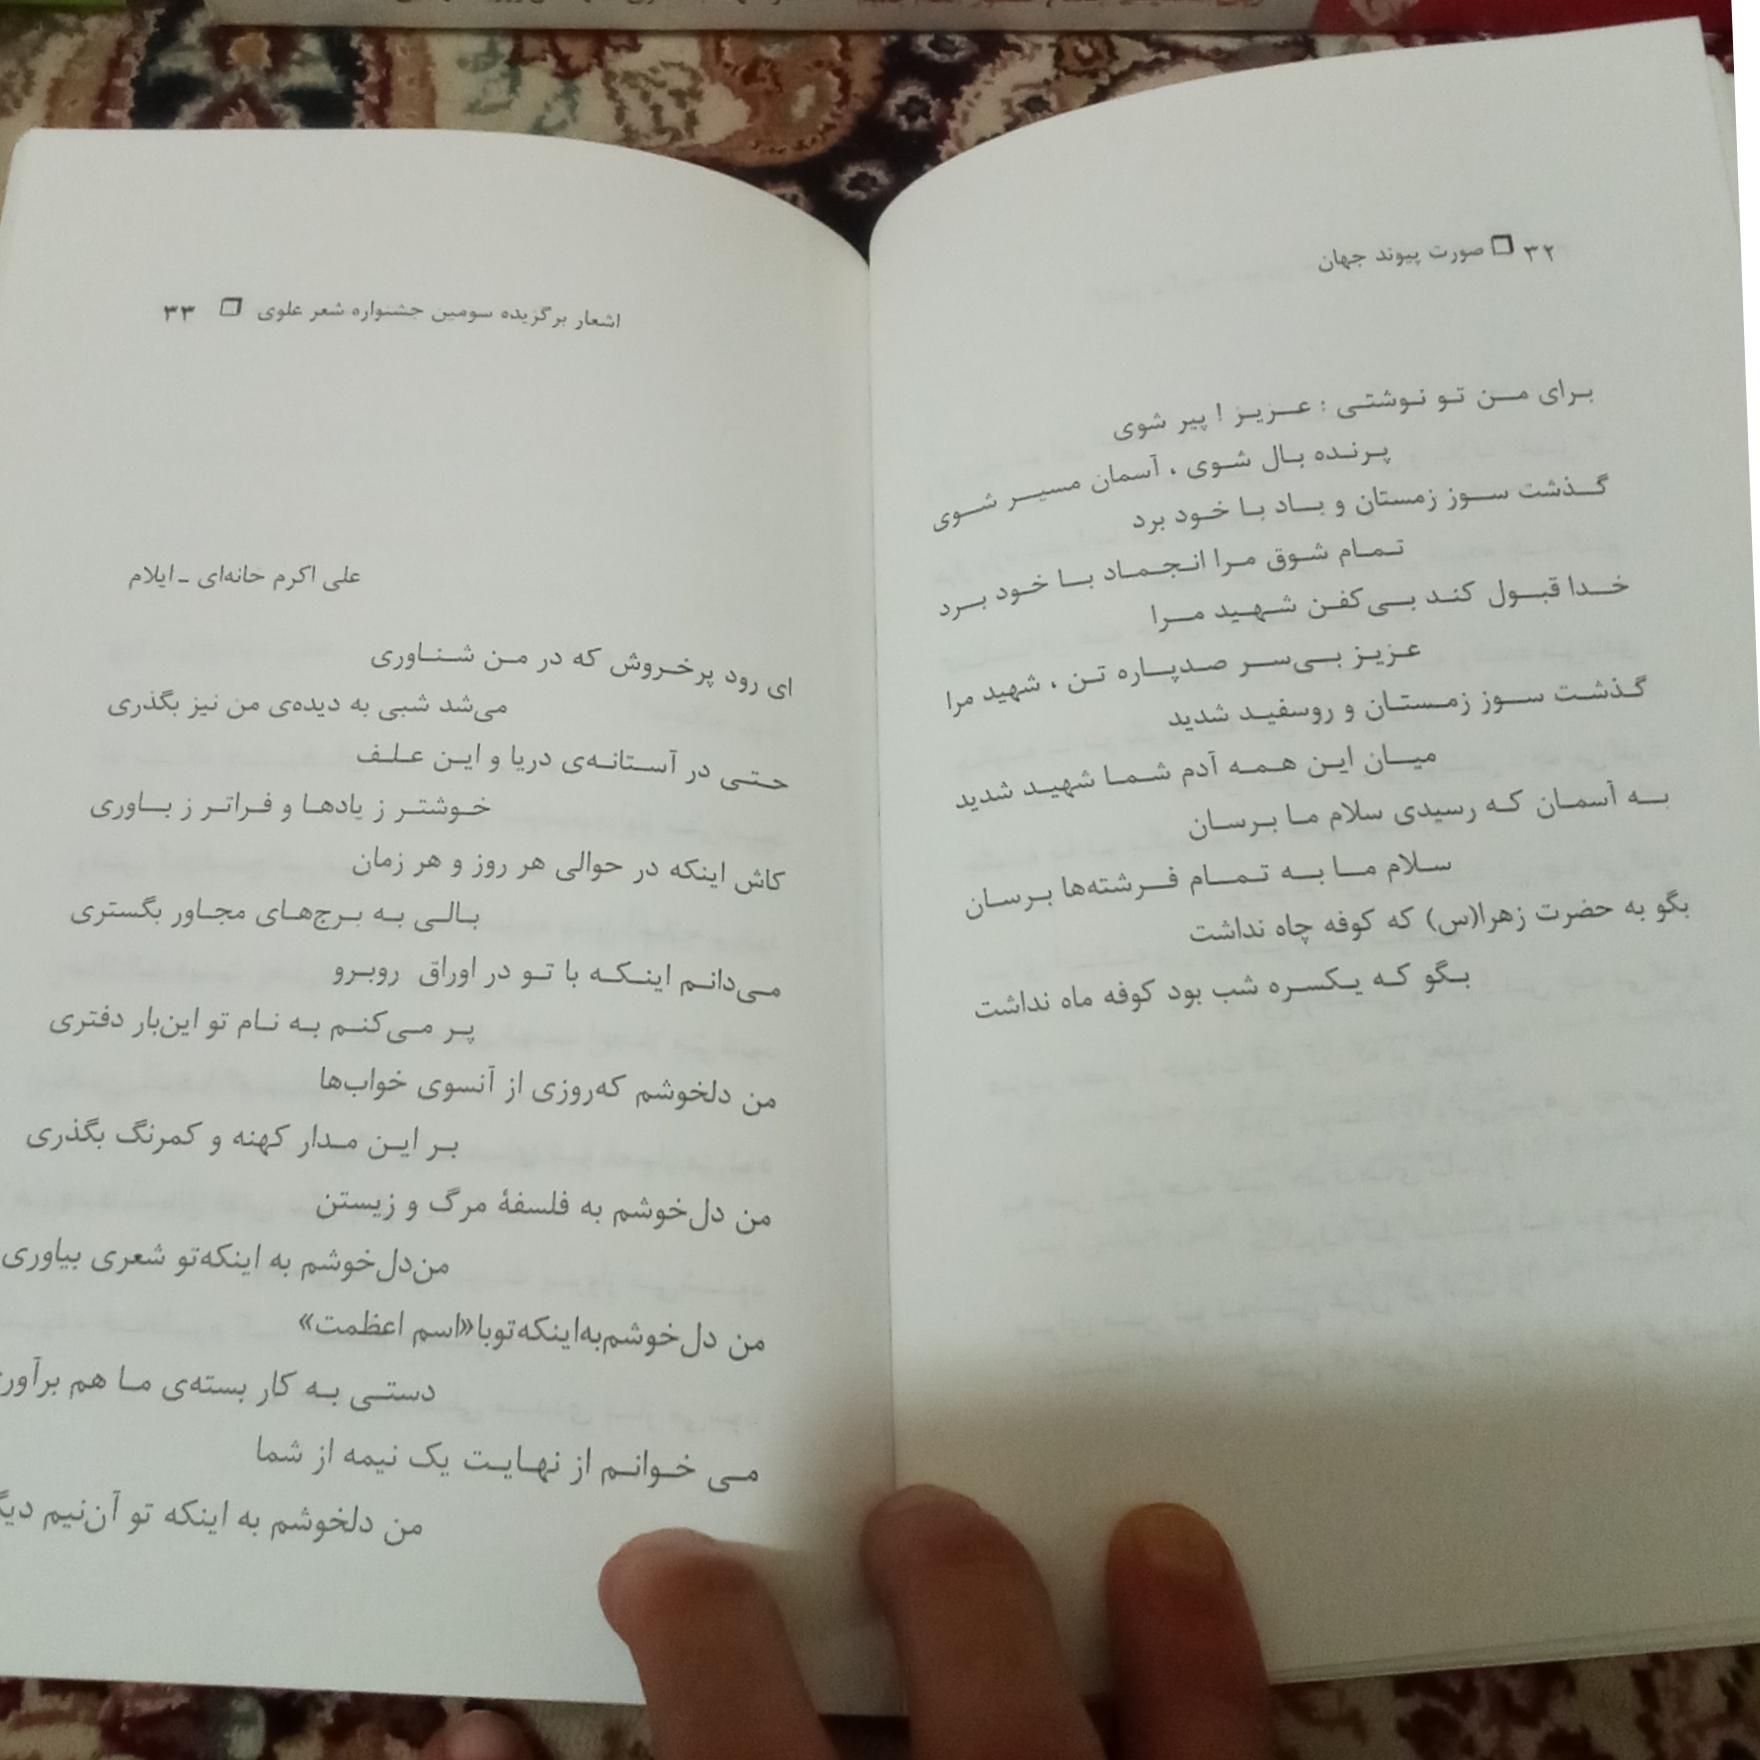 ۳۲ صورت پیوند جهان
برای من تو نوشتی : عزیز ! پیر شوی
پرنده بال شوی ، آسمان مسیر شوی
گذشت سوز زمستان و باد با خود برد
تمام شوق مرا انجماد با خود برد
خدا قبول کند بی‌کفن شهید مرا
عزیز بی‌سر صدپاره تن ، شهید مرا
گذشت سوز زمستان و روسفید شدید
میان این همه آدم شما شهید شدید
به آسمان که رسیدی سلام ما برسان
سلام ما به تمام فرشته‌ها برسان
بگو به حضرت زهرا(س) که کوفه چاه نداشت
بگو که یکسره شب بود کوفه ماه نداشت
اشعار برگزیده سومین جشنواره شعر علوی ۳۳
علی اکرم خانه‌ای ـ ایلام
ای رود پرخروش که در من شناوری
می‌شد شبی به دیده‌ی من نیز بگذری
حتی در آستانه‌ی دریا و این علف
خوشتر ز یادها و فراتر ز باوری
کاش اینکه در حوالی هر روز و هر زمان
بالی به برج‌های مجاور بگستری
می‌دانم اینکه با تو در اوراق روبرو
پر می‌کنم به نام تو این‌بار دفتری
من دلخوشم که‌روزی از آنسوی خواب‌ها
بر این مدار کهنه و کمرنگ بگذری
من دل‌خوشم به فلسفهٔ مرگ و زیستن
من‌دل‌خوشم به اینکه‌تو شعری بیاوری
من دل‌خوشم‌به‌اینکه‌توبا«اسم اعظمت»
دستی به کار بسته‌ی ما هم
می خوانم از نهایت یک نیمه از شما
من دلخوشم به اینکه تو آن‌نیم